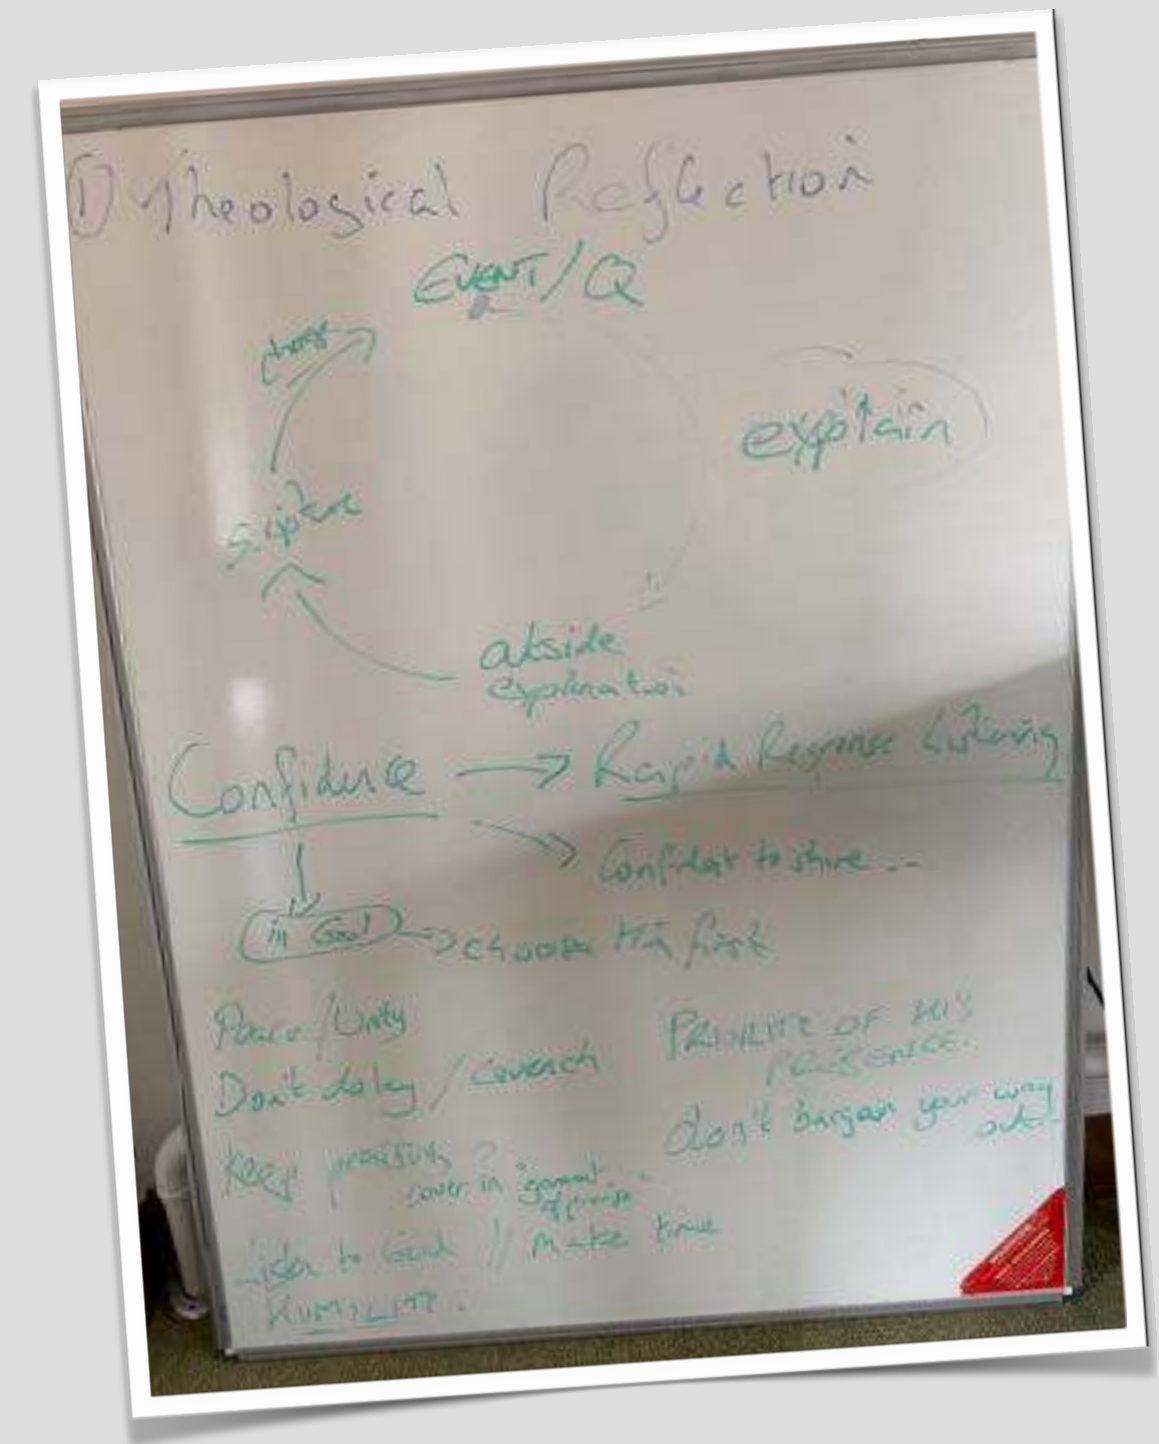 1) Theological Reflection
EVENT/Q
change
explain
Scripture
outside
explanation
Confidence → Rapid Response Listening
Confident to shine...
in God → choose Him first
Peace/Unity
PRIORITY OF HIS
PRESENCE.
Don't delay /
don't bargain your way
out..
Keep praising
cover in "garment
of praise"
Listen to God // Make time
HUMILITY.